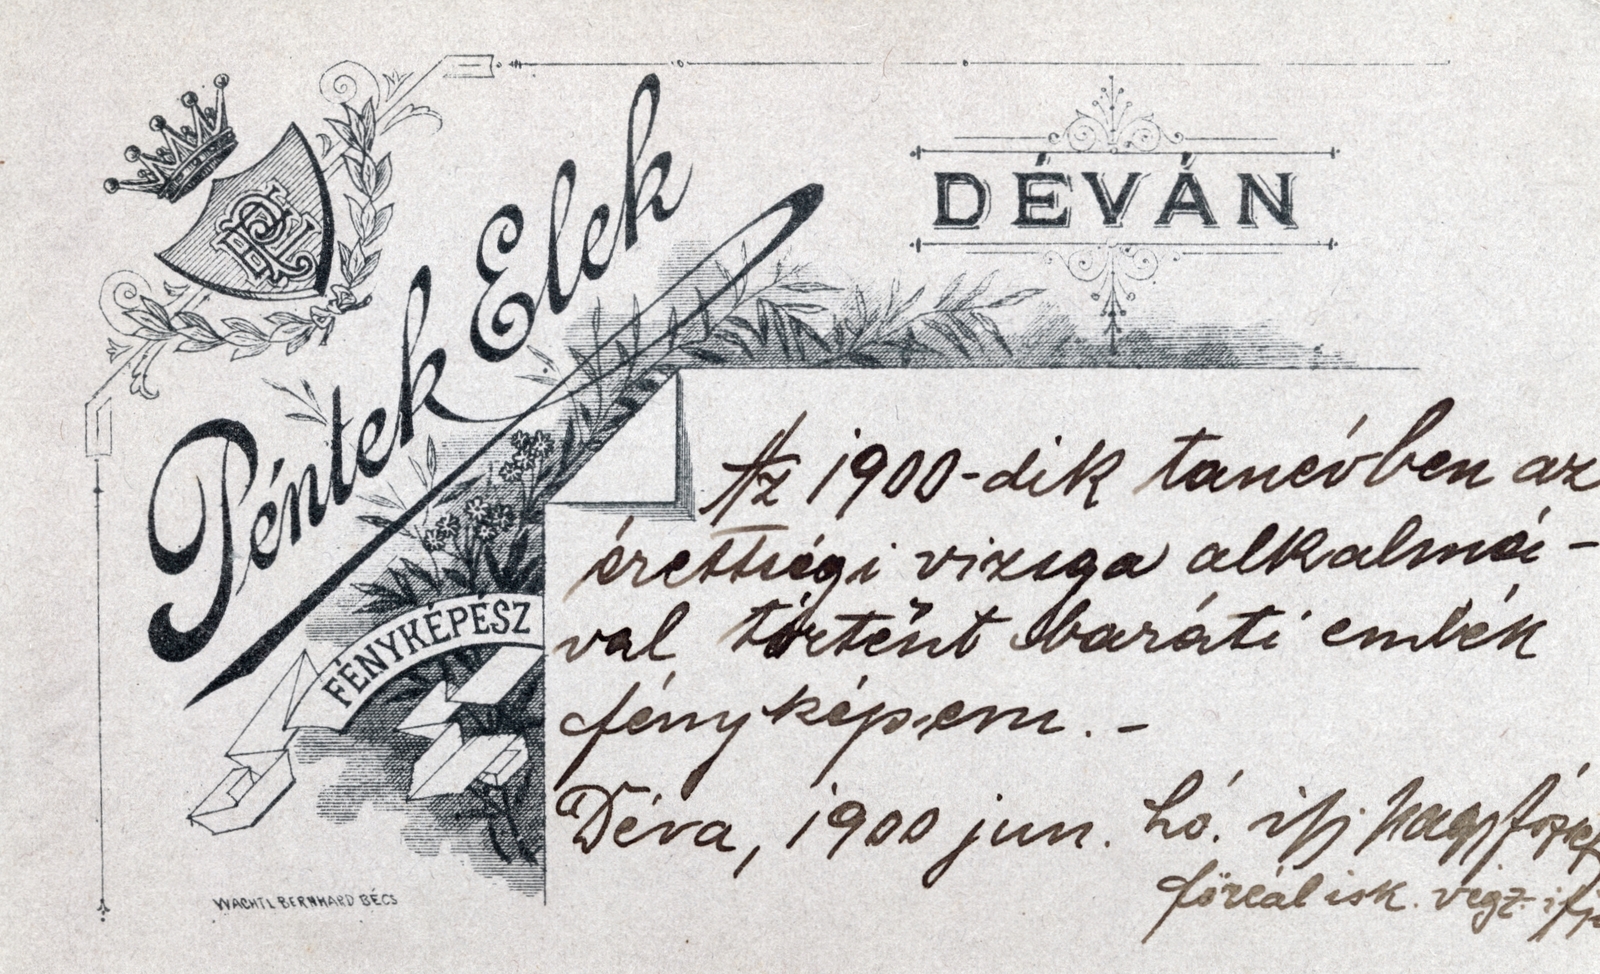 Péntek Elek
DÉVÁN
FÉNYKÉPÉSZ
WACHTL BERNHARD BÉCS
Az 1900-dik tanévben az
érettségi vizsga alkalmá-
val történt baráti emlék
fényképem. –
Déva, 1900 jun. hó. ifj Nagy József
főreál isk. végz. ifj